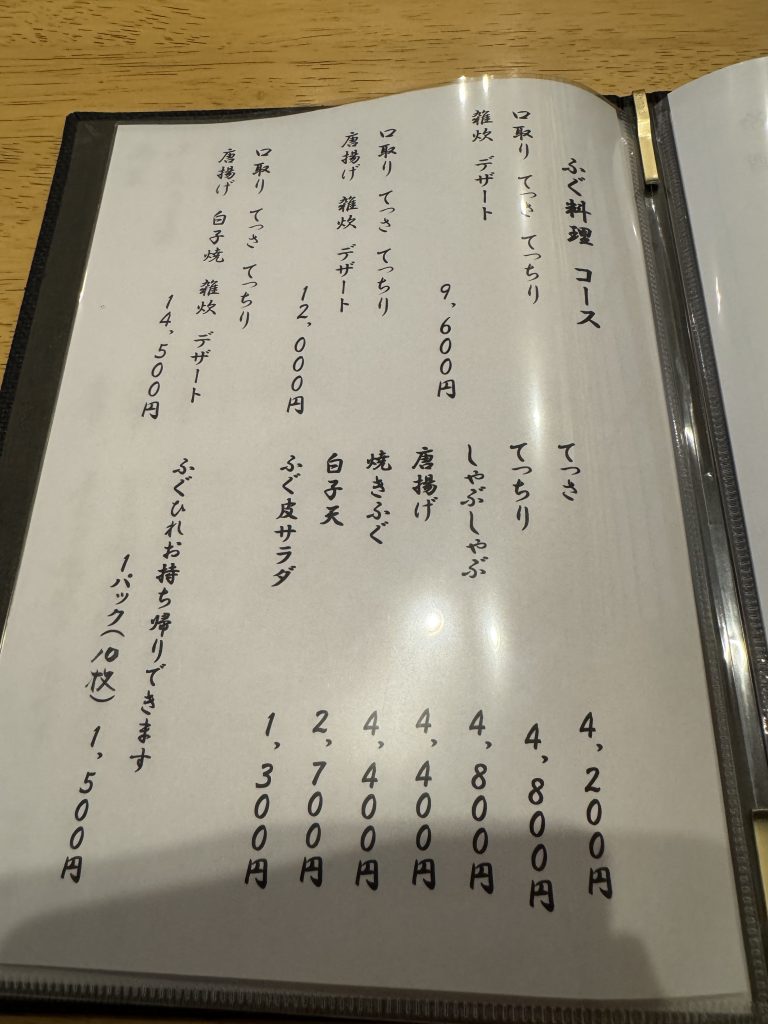 ふぐ料理 コース
口取り てっさ てっちり
雑炊 デザート
9,600円
口取り てっさ てっちり
唐揚げ 雑炊 デザート
12,000円
口取り てっさ てっちり
唐揚げ 白子焼 雑炊 デザート
14,500円
てっさ 4,200円
てっちり 4,800円
しゃぶしゃぶ 4,800円
唐揚げ 4,400円
焼きふぐ 4,400円
白子天 2,700円
ふぐ皮サラダ 1,300円
ふぐひれお持ち帰りできます
1パック(10枚) 1,500円